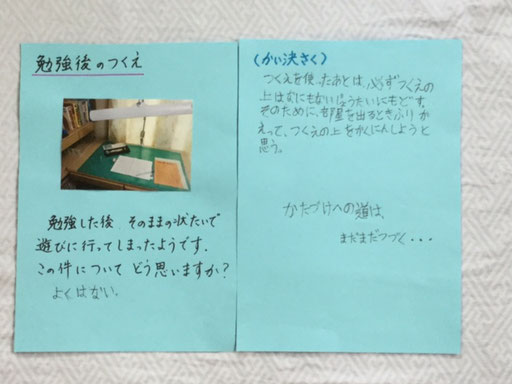 勉強後のつくえ
勉強した後、そのままの状たいで
遊びに行ってしまったようです。
この件について どう思いますか?
よくはない。
(かい決さく)
つくえを使ったあとは、必ずつくえの
上はなにもないじょうたいにもどす。
そのために、部屋を出るときふりか
えって、つくえの上をかくにんしようと
思う。
かたづけへの道は、
まだまだつづく・・・